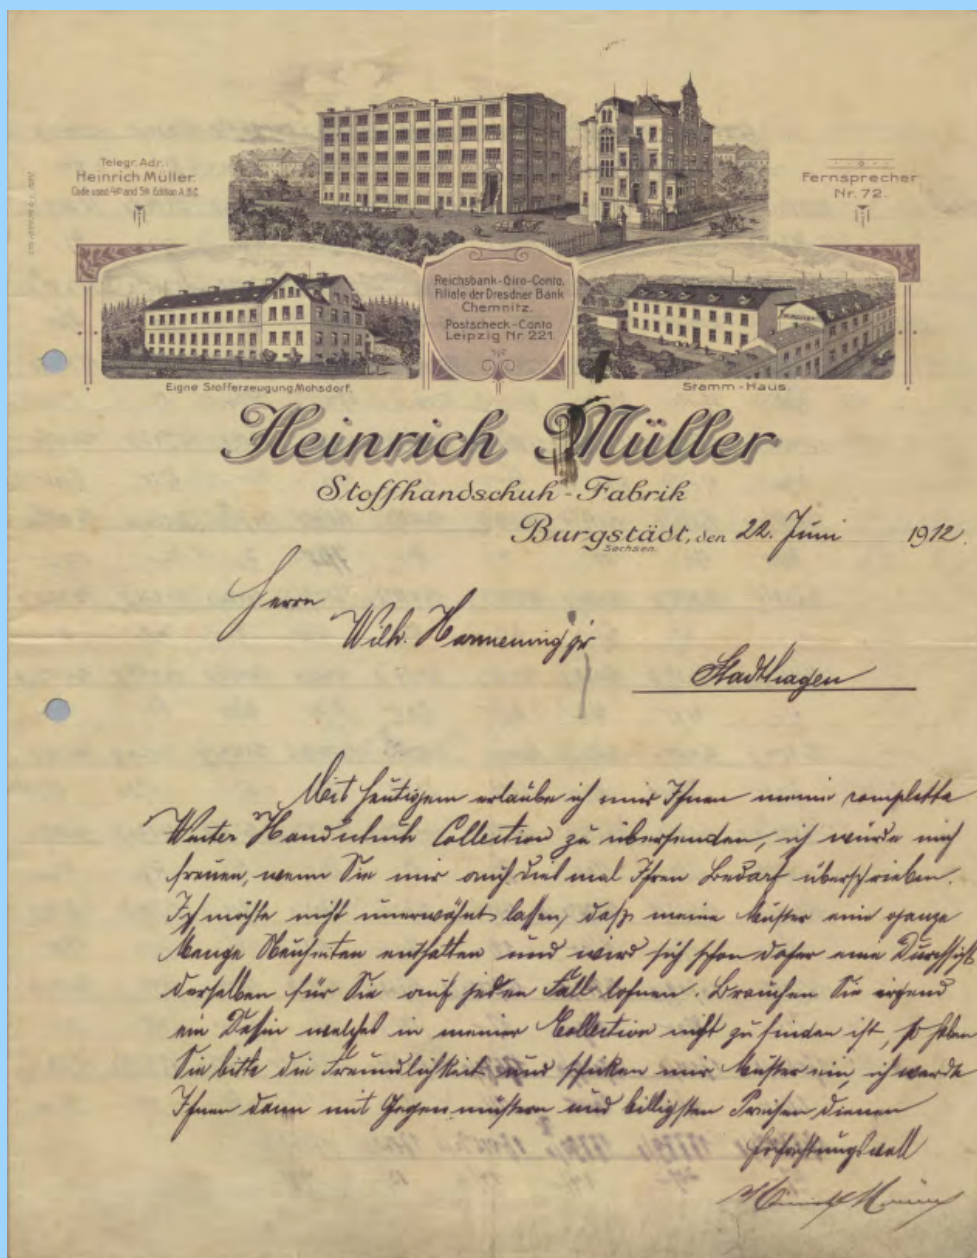 Telegr. Adr.
Heinrich Müller.
Code used 4th and 5th Edition A.B.C.
Fernsprecher
Nr. 72.
Reichsbank-Giro-Conto.
Filiale der Dresdner Bank
Chemnitz.
Postscheck-Conto
Leipzig Nr 221.
Eigne Stofferzeugung Mohsdorf.
Stamm-Haus.
Heinrich Müller
Stoffhandschuh-Fabrik
Burgstädt, den 22. Juni 1912.
Sachsen.
Herrn
Wilh. Hannening jr
Stadthagen
Mit Heutigem erlaube ich mir Ihnen meine complette
Winter Handschuh Collection zu übersenden, ich würde mich
freuen, wenn Sie mir auch dies mal Ihren Bedarf überschrieben.
Ich möchte nicht unerwähnt lassen, daß meine Muster eine ganze
Menge Neuheiten enthalten und wird sich schon daher eine Durchsicht
derselben für Sie auf jeden Fall lohnen. Brauchen Sie irgend
ein Dessin welches in meiner Collection nicht zu finden ist, so haben
Sie bitte die Freundlichkeit und schicken mir Muster ein, ich werde
Ihnen dann mit Gegenmustern und billigsten Preisen dienen
Hochachtungsvoll
Heinrich Müller